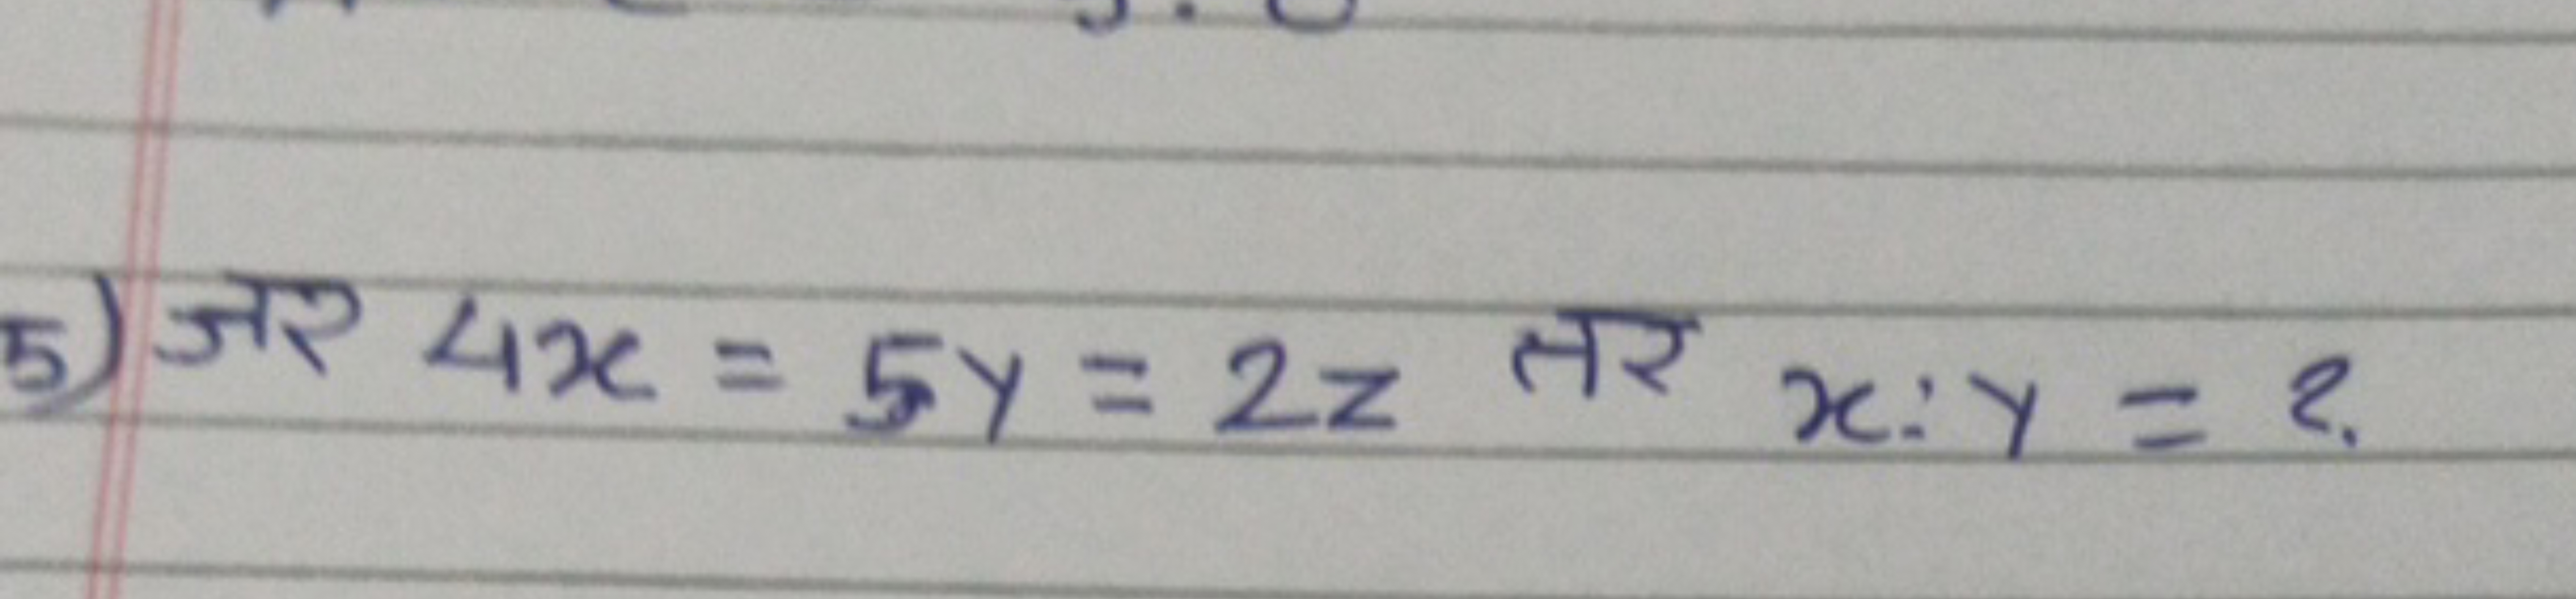 5) जर 4x = 5y = 2z तर x:y = ?